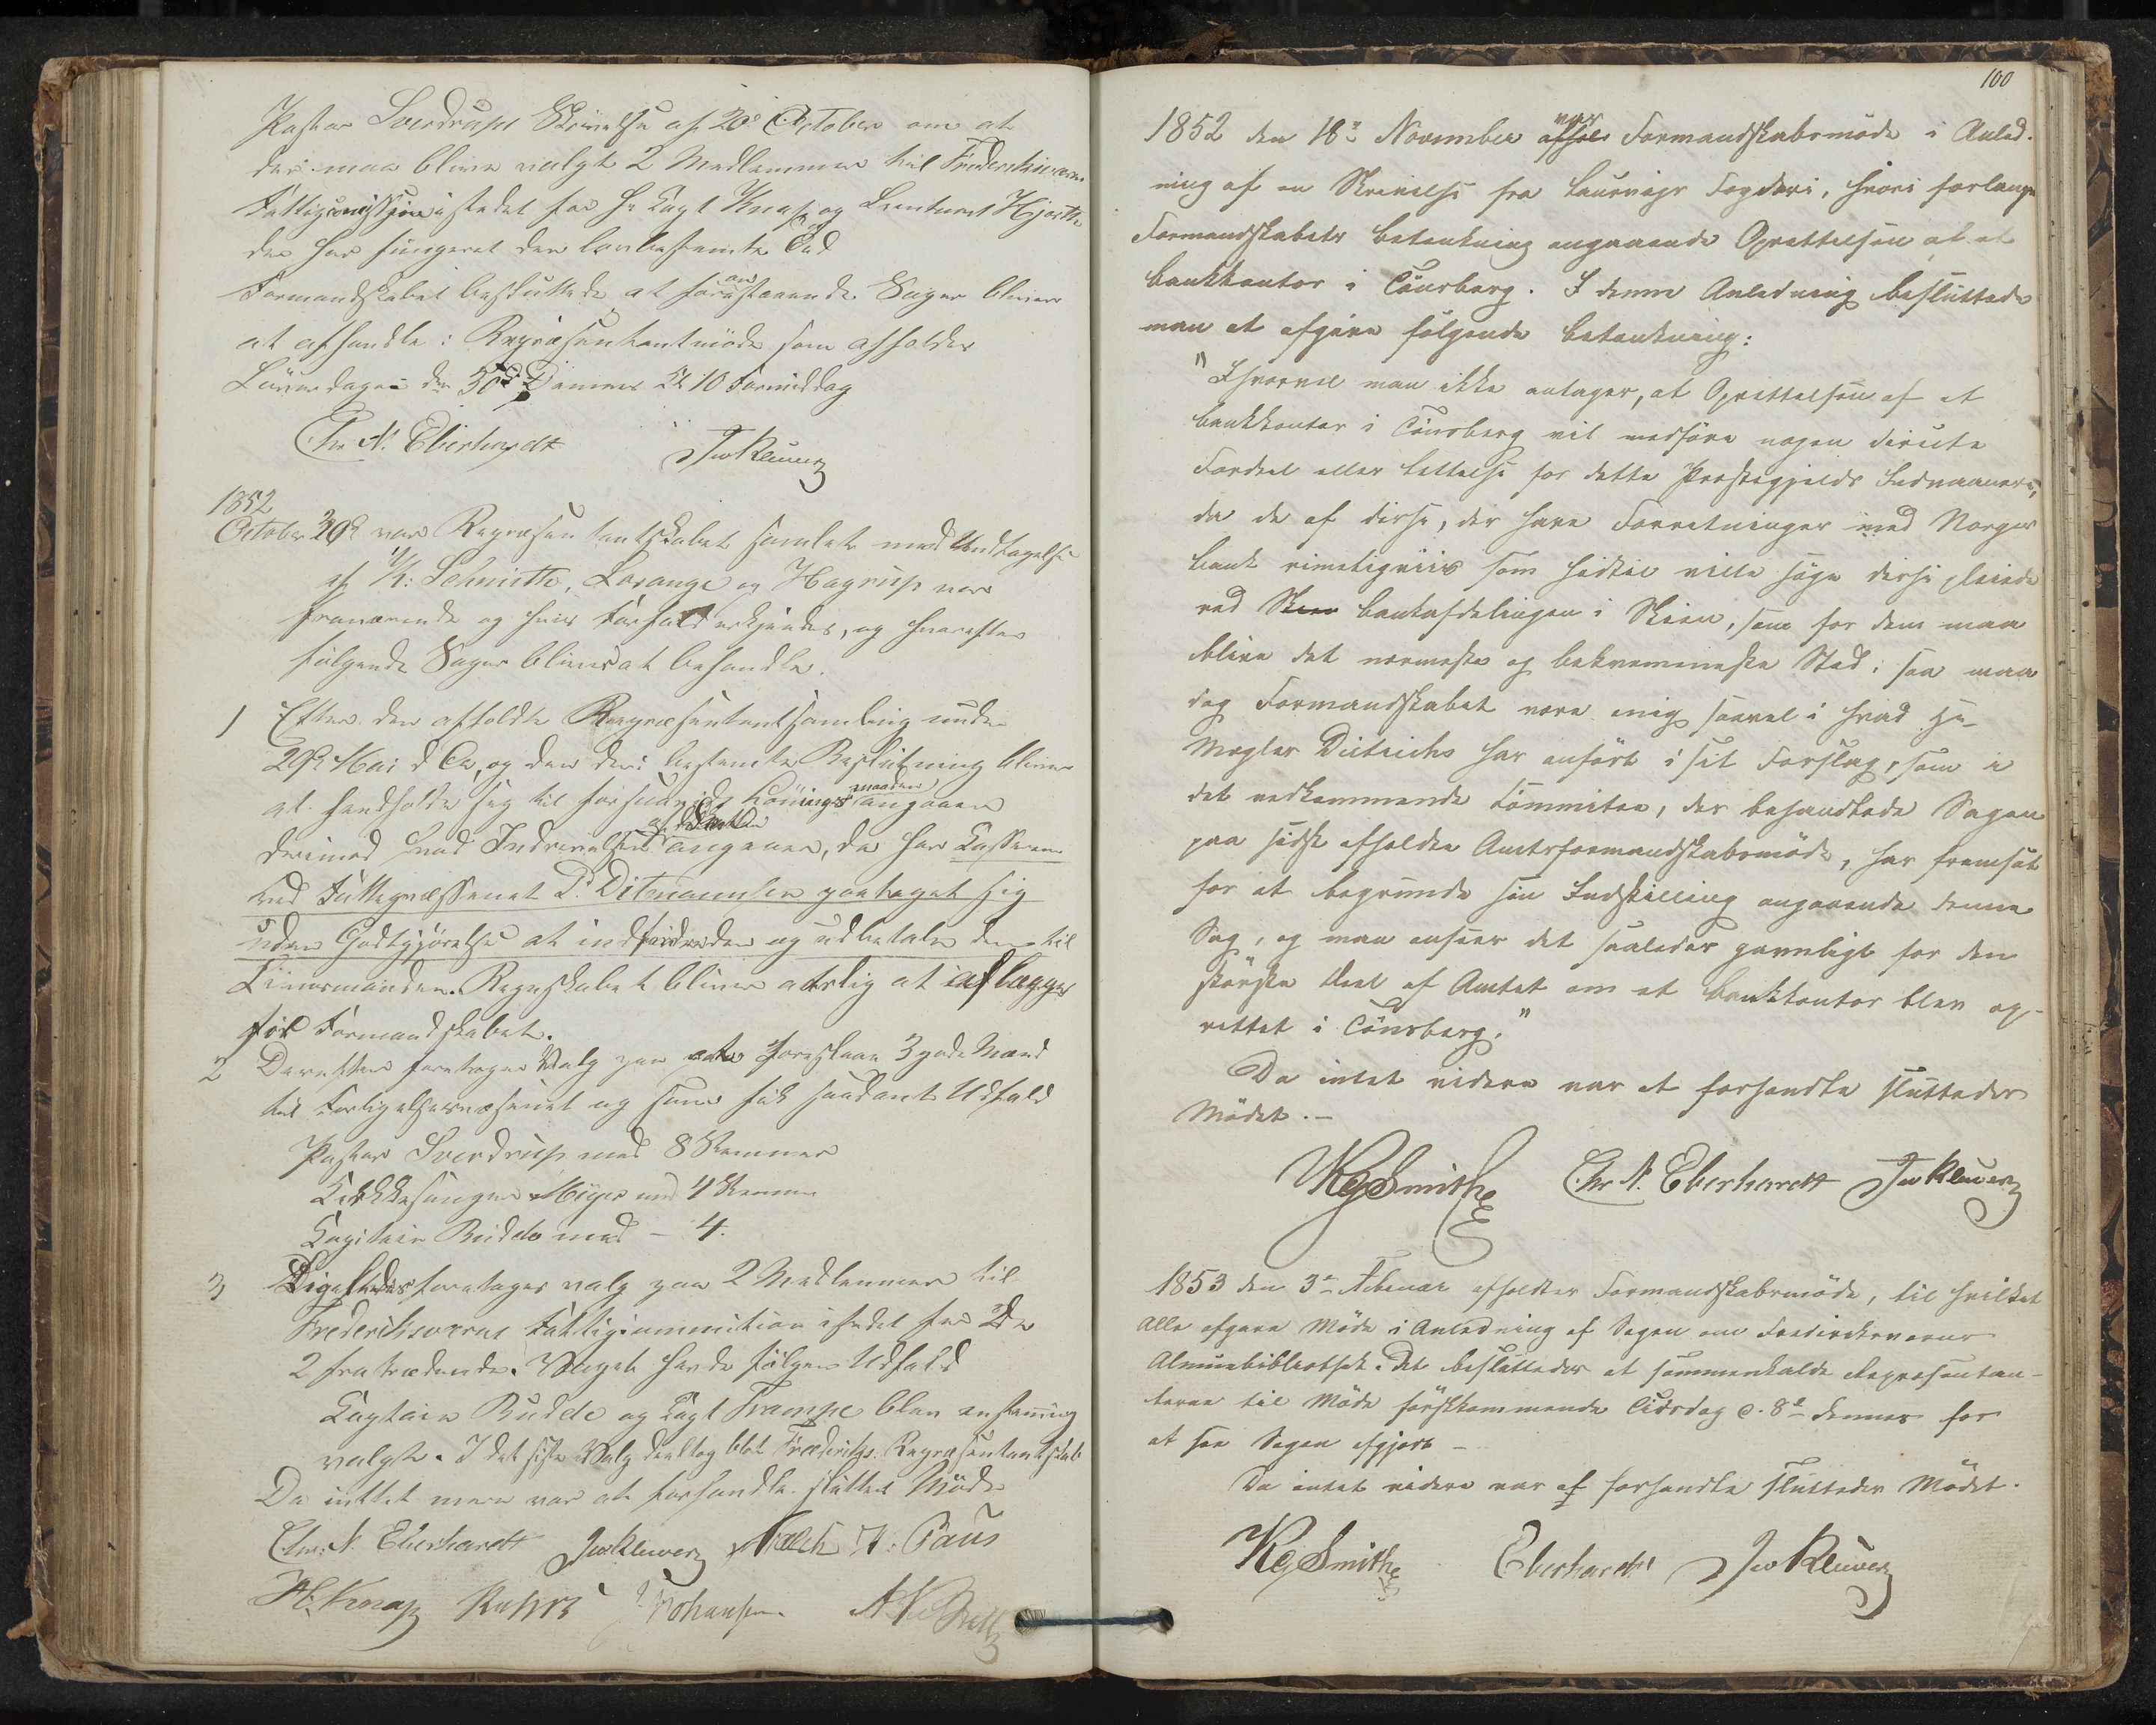 Pastor Sverdrups Skrivelse af 20de October om at
der maa blive valgt 2 Medlemmer til Frederiksværns
Fattigcommission istedet for Hr Capt Knap og Lieutnant Hjorth
der har fungeret den lovbestemte Tid
Formandskabet besluttede at foranstaaende Sager bliver
at afhandle i Repræsentantmöde som afholdes
Löverdagen den 30te Dennes Kl 10 Formiddag
Chr N. Eberhardt Jno Kluwer
1852
October 30te var Repræsentantskabet samlet med Undtagelse
af Hr: Schmidth, Lorange og Hagrup var
fraværende og hvis Forfald erkjendes, og hvorefter
fölgende Sager bliver at behandle.
1 Efter den afholdte Repræsentantsamling under
29de Mai d Ar, og den deri bestemte Beslutning bliver
at henholde sig til forsaavidt Lönings maaden angaaer
derimod hvad Inddrivelsen af Skatten angaaer, da har Kasserer
ved Fattigvæsenet P. Ditmansen paataget sig
uden Godtgjörelse at indfordre den og udbetale den til
Regnskabet bliver aarlig at aflægges
for Formandskabet.
2 Derefter foretages Valg paa at foreslaae 3 gode Mænd
til Forligelsesvæsenet og som fik saadant Udfald
Pastor Sverdrup med 8 Stemmer
Kirkesanger Meyer med 4 Stemmer
Capitain Budde med - 4.
3 Ligeledes foretages valg paa 2 Medlemmer til
Frederiksværns Fattigcommission istedet for De
2 fratrædende. Valget havde fölgende Udfald
Captain Budde og Capt Trampe blev enstemmig
valgte. I det siste Valg deeltog blot Frederiksv. Repræsentantskab
Da inttet mere var at forhandle sluttes Möde
Chr: N. Eberhardt Jno Kluwer Falch N: Paus
H. Knap J Johansen
100
1852 den 18de November var afholdt Formandskabsmöde i Anled-
ning af en Skrivelse fra Laurvigs Fogderi, hvori forlanges
Formandskabets Betænkning angaaende Oprettelsen af et
Bankkontor i Tönsberg. I denne Anledning besluttede
man at afgive fölgende Betænkning:
"Ihvorvel man ikke antager, at Oprettelsen af et
Bankkontor i Tönsberg vil medföre nogen directe
Fordeel eller Lettelse for dette Præstegjelds Indvaanere,
da de af disse, der have Forretninger med Norges
Bank rimeligviis som hidtil ville söge disse pleiede
ved Skien Bankafdelingen i Skien, som for dem maa
blive det nærmeste og bekvemmeste Sted; saa maa
dog Formandskabet være enig saavel i hvad Hr.
Mægler Dietrichs har anfört i sit Forslag, som i
det vedkommende Committee, der behandlede Sagen
paa sidst afholdte Amtsformandskabsmöde, har fremsat
for at begrunde sin Indstilling angaaende denne
Sag, og man anseer det saaledes gavnligt for den
störste Deel af Amtet om et Bankkontor blev op-
rettet i Tönsberg."
Da intet videre var at forhandle sluttedes
Mödet.-
Kg Smith Chr N. Eberhardt Jno Kluwer
1853 den 3de Februar afholdtes Formandskabsmöde, til hvilket
alle afgave Möde i Anledning af Sagen om Frederiksværns
Almuebibliothek. Det besluttedes at sammenkalde Repræsentan-
terne til Möde förstkommende Tirsdag d. 8de dennes for
at faa Sagen afgjort -
Da intet videre var at forhandle sluttedes Mödet.
Kg Smith Eberhardt Jno Kluwer